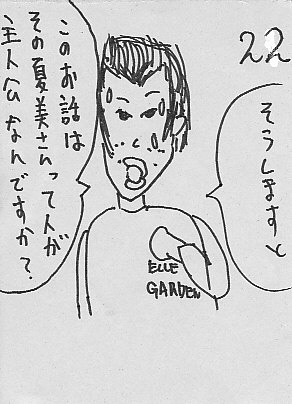 22
そうしますと
このお話は
その夏美さんって人が
主人公なんですか？
ELLE
GARDEN